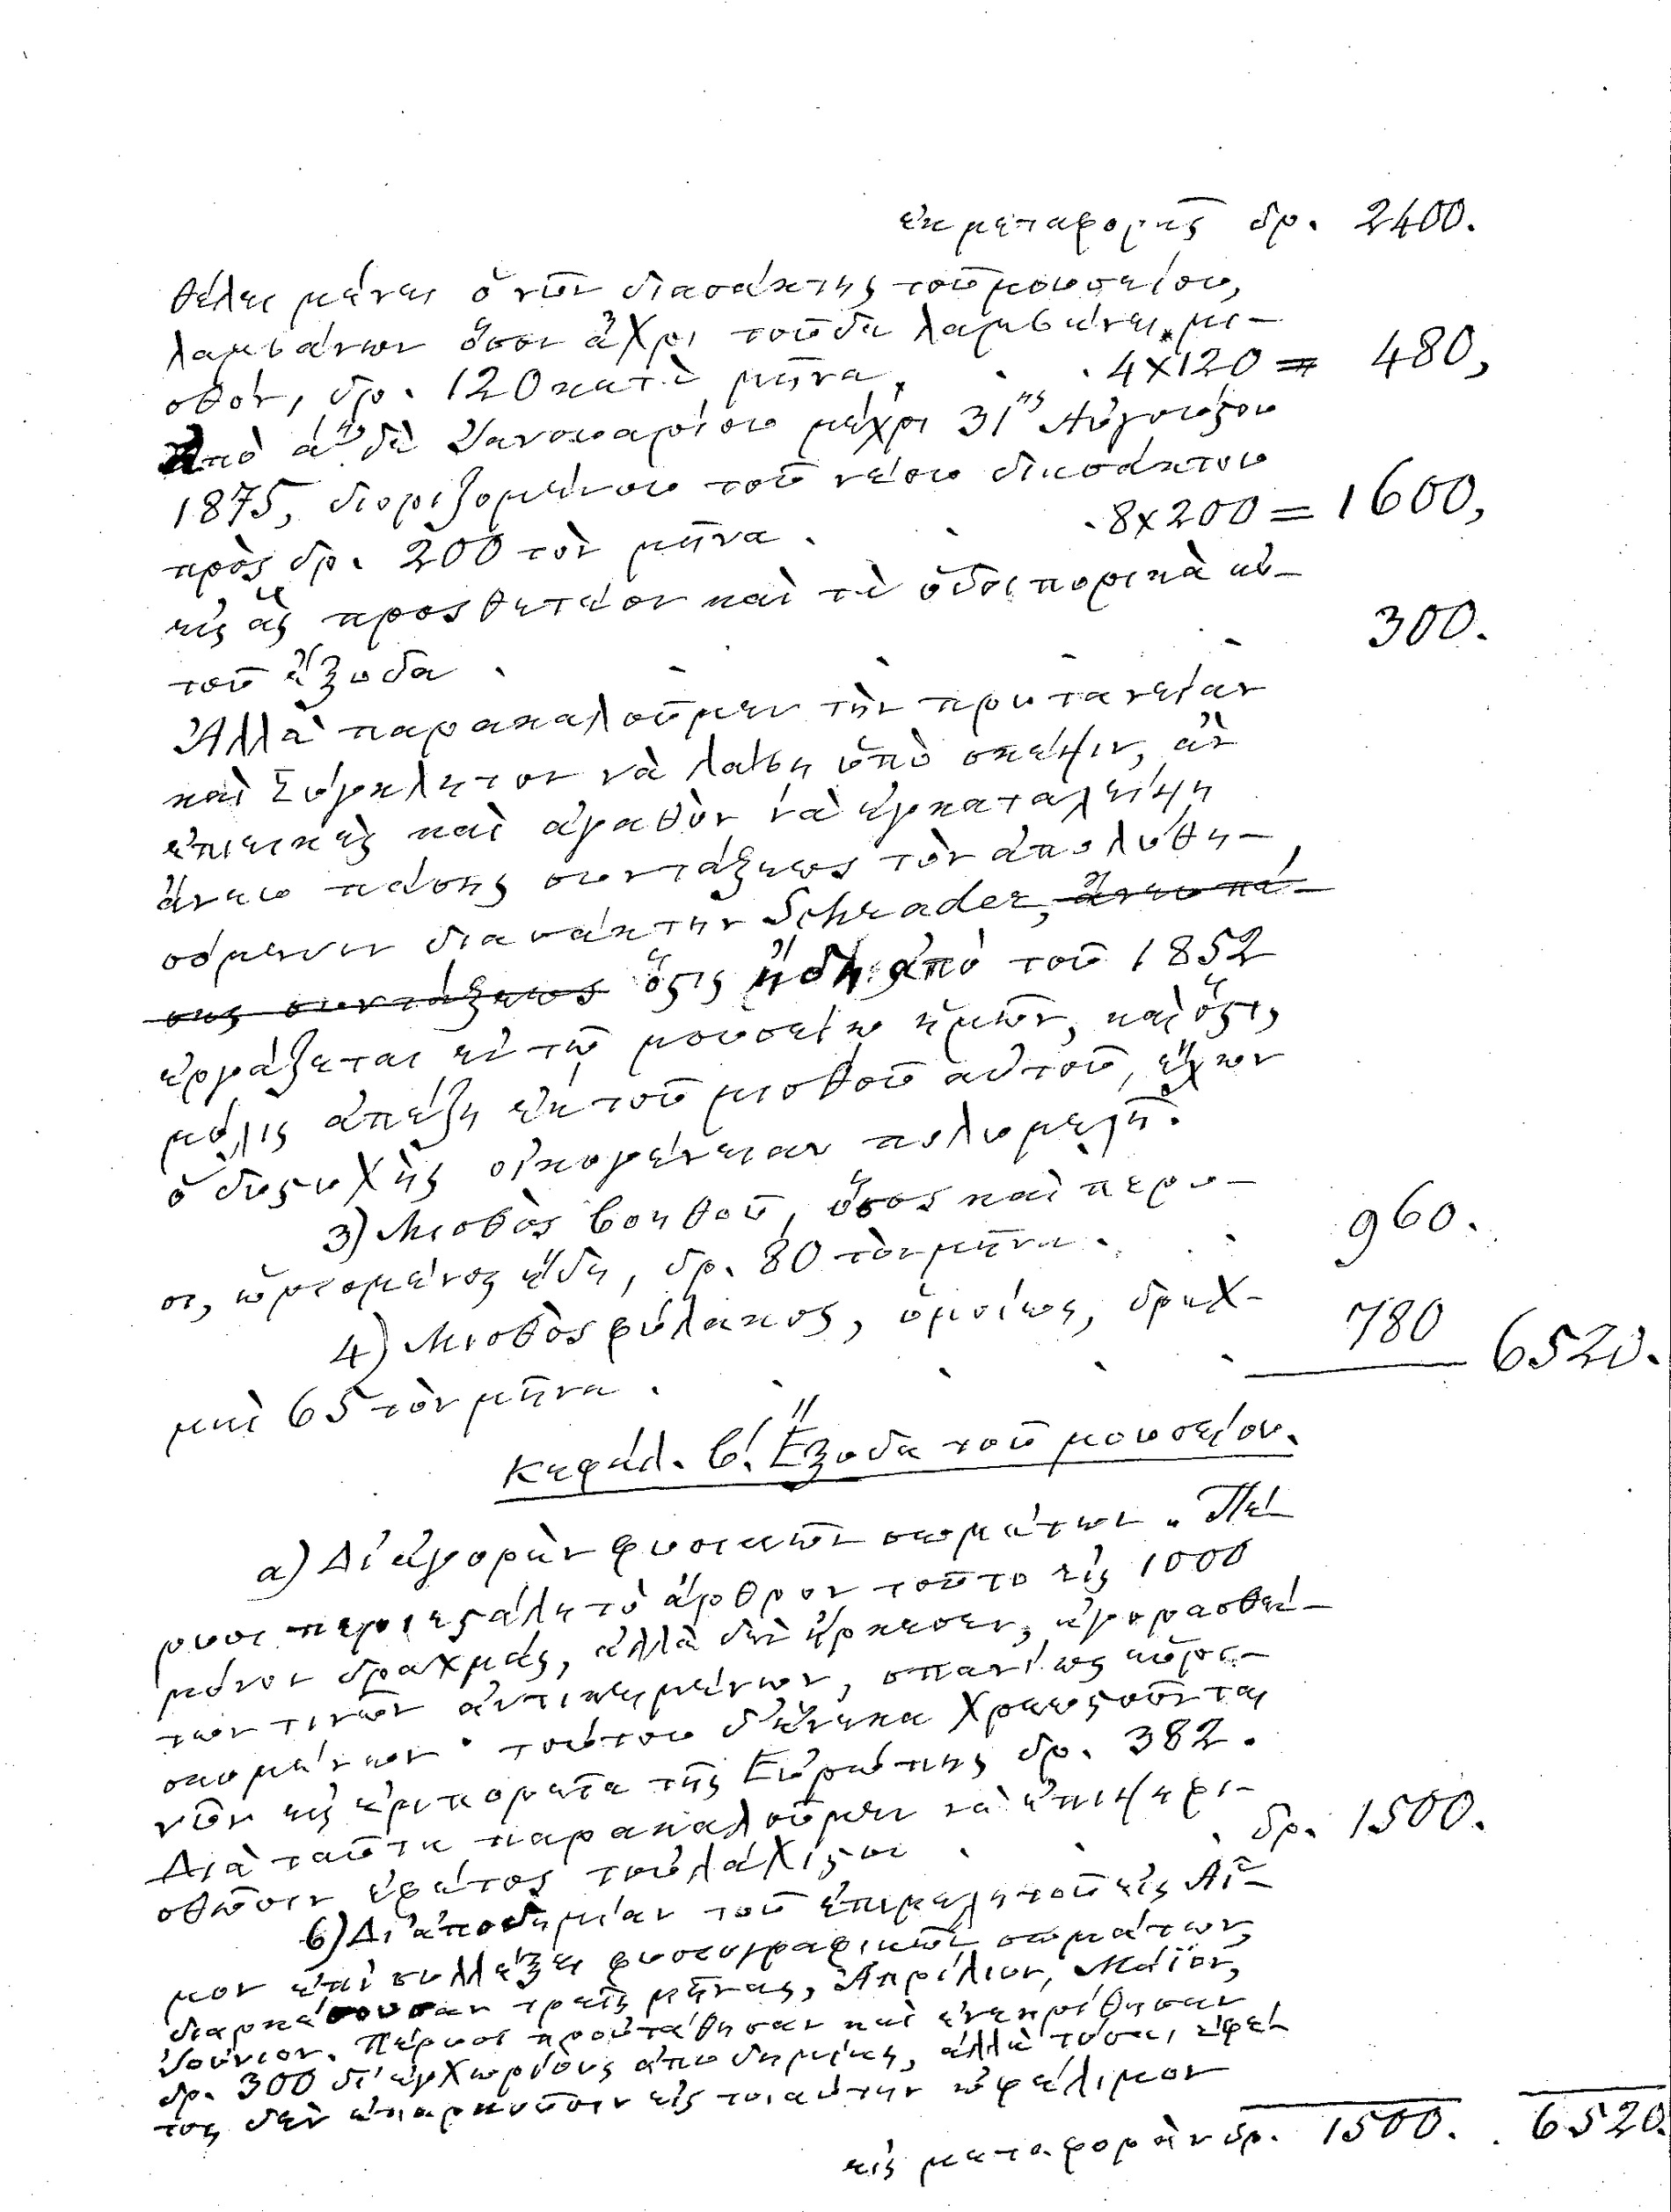 ἐκ μεταφορᾶς δρ. 2400.
θέλει μένει ὁ νῦν διασάκτης τοῦ μουσείου,
λαμβάνων ὅσον ἄχρι τοῦδε λαμβάνει μι-
σθόν, δρ. 120 κατὰ μῆνα, . . 4×120 = 480,
Ἀπὸ αʹης δὲ Ἰανουαρίου μέχρι 31ης Αὐγούστου
1875, διοριζομένου τοῦ νέου διασάκτου
πρὸς δρ. 200 τὸν μῆνα . . . 8×200 = 1600,
εἰς ἃς προσθετέον καὶ τὰ ὁδοιπορικὰ αὐ-
τοῦ ἔξοδα . . . . . 300.
Ἀλλὰ παρακαλοῦμεν τὴν πρυτανείαν
καὶ Σύγκλητον νὰ λάβῃ ὑπὸ σκέψιν, ἂν
ἐπιεικὲς καὶ ἀγαθὸν νὰ ἐγκαταλείψῃ
ἄνευ πάσης συντάξεως τὸν ἀπολυθη-
σόμενον διασάκτην Schrader, ἄνευ πά-
σης συντάξεως ὅστις ἤδη ἀπὸ τοῦ 1852
ἐργάζεται ἐν τῷ μουσείῳ ἡμῶν, καὶ ὅστις
μόλις ἀπέζη ἐκ τοῦ μισθοῦ αὐτοῦ, ἔχων
ὁ δυστυχὴς οἰκογένειαν πολυμελῆ.
3) Μισθὸς βοηθοῦ, ὅσος καὶ πέρυ-
σι, ὡρισμένος ἤδη, δρ. 80 τὸν μῆνα . . . 960.
4) Μισθὸς φύλακος, ὁμοίως, δραχ-
μαὶ 65 τὸν μῆνα . . . . . 780 6520.
Κεφάλ. β′. Ἔξοδα τοῦ μουσείου.
α) Δι' ἀγορὰν φυσικῶν σωμάτων. Πέ-
ρυσι περιεστάλη τὸ ἄρθρον τοῦτο εἰς 1000
μόνον δραχμάς, ἀλλὰ δὲν ἤρκεσεν, ἀγορασθέν-
των τινῶν ἀντικειμένων, σπανίως εὑρι-
σκομένων· τούτου δ' ἕνεκα χρεωστοῦνται
νῦν εἰς ἐμπορεῖα τῆς Εὐρώπης δρ. 382.
Διὰ ταῦτα παρακαλοῦμεν νὰ ἐπιψηφι-
σθῶσιν ἐφέτος τοὐλάχιστον . . . δρ. 1500.
β) Δι' ἀποδημίαν τοῦ ἐπιμελητοῦ εἰς Αἷ-
μον ἐπὶ συλλέξει φυσιογραφικῶν σωμάτων,
διαρκέσουσαν τρεῖς μῆνας, Ἀπρίλιον, Μάϊον,
Ἰούνιον. Πέρυσι προὐτάθησαν καὶ ἐνεκρίθησαν
δρ. 300 δι' ἐγχωρίους ἀποδημίας, ἀλλὰ τόσαι, ἐφέ-
τος δὲν ἐπαρκοῦσιν εἰς τοιαύτην ὠφέλιμον
εἰς μεταφορὰν δρ. 1500. . 6520.